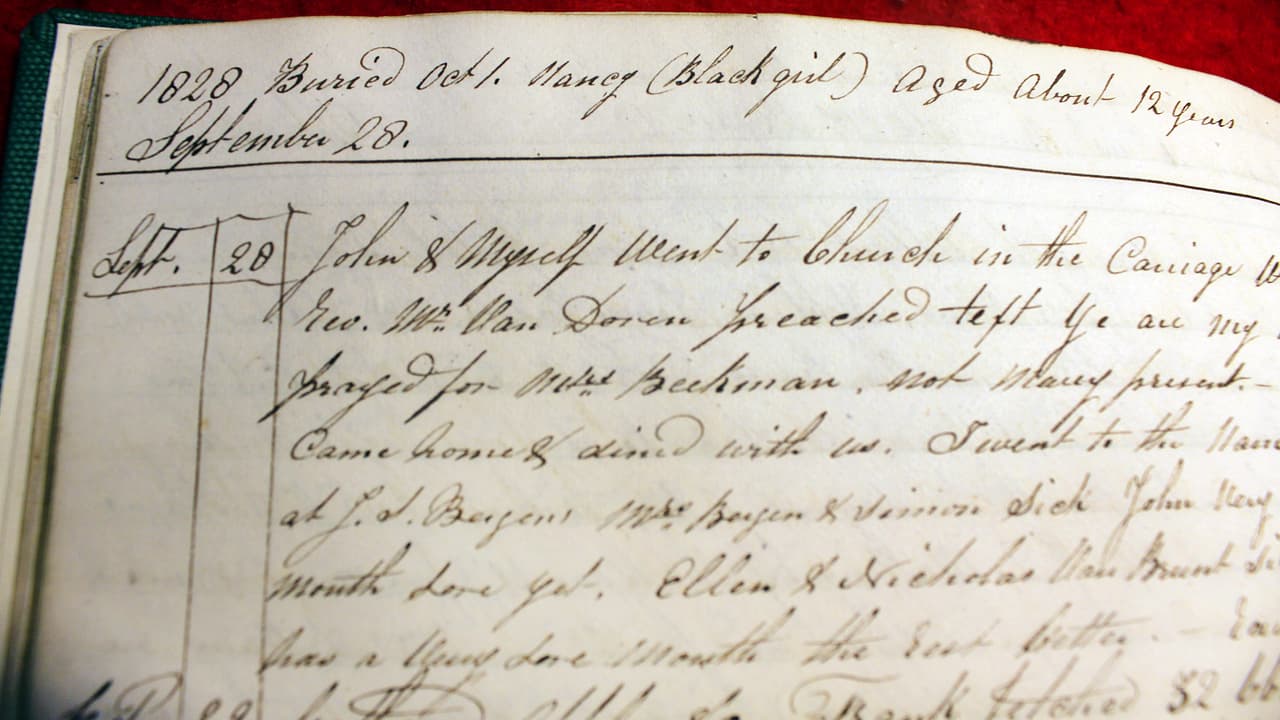 1828 Buried Oct 1. Nancy (Black girl) Aged About 12 years
September 28.
Sept. 28 John & Myself Went to Church in the Carriage
Rev. Mr. Van Doren preached text Ye are my
prayed for Mrs Beekman. not Many present. -
Came home & dined with us. I went to the
at J. S. Bergens Mrs. Bergen & Simon Sick John Very
Month Sore yet. Ellen & Nicholas Van Brunt
has a Very Sore Mouth the rest better. -
32